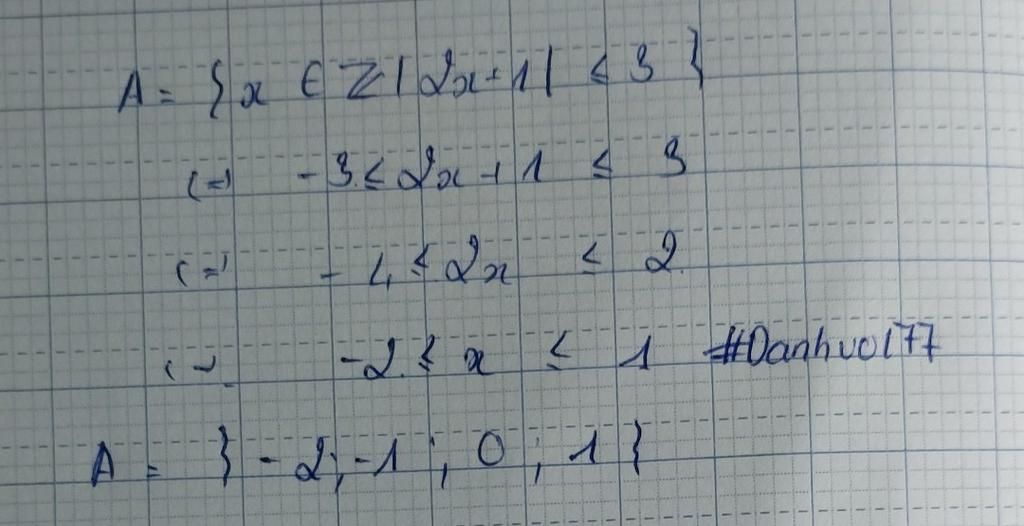 A = { x ∈ Z | |2x + 1| ≤ 3 }
(=) -3 ≤ 2x + 1 ≤ 3
(=) -4 ≤ 2x ≤ 2
(=) -2 ≤ x ≤ 1 #Danhvol77
A = { -2; -1; 0; 1 }